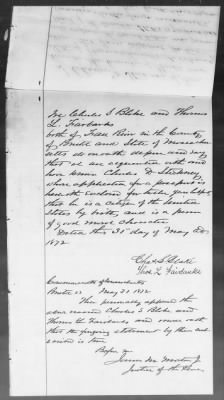 We Charles S Blake and Thomas
L. Fairbanks
both of Fall River in the County
of Bristol and State of Massachu
setts do on oath depose and say
that we are acquainted with and
have known Charles D. Stickney
whose application for a passport is
hereto
that he is a citizen of the United
States by birth, and is a person
of good moral character
Dated this 31st day of May A.D.
1872
Chas S Blake
Thos. L. Fairbanks
Commonwealth of Massachusetts
Bristol SS May 31 1872
Then personally appeared the
above named Charles S Blake and
Thomas L. Fairbanks and made oath
that the foregoing statement by them sub
scribed is true
Before me
James M Morton Jr
Justice of the Peace